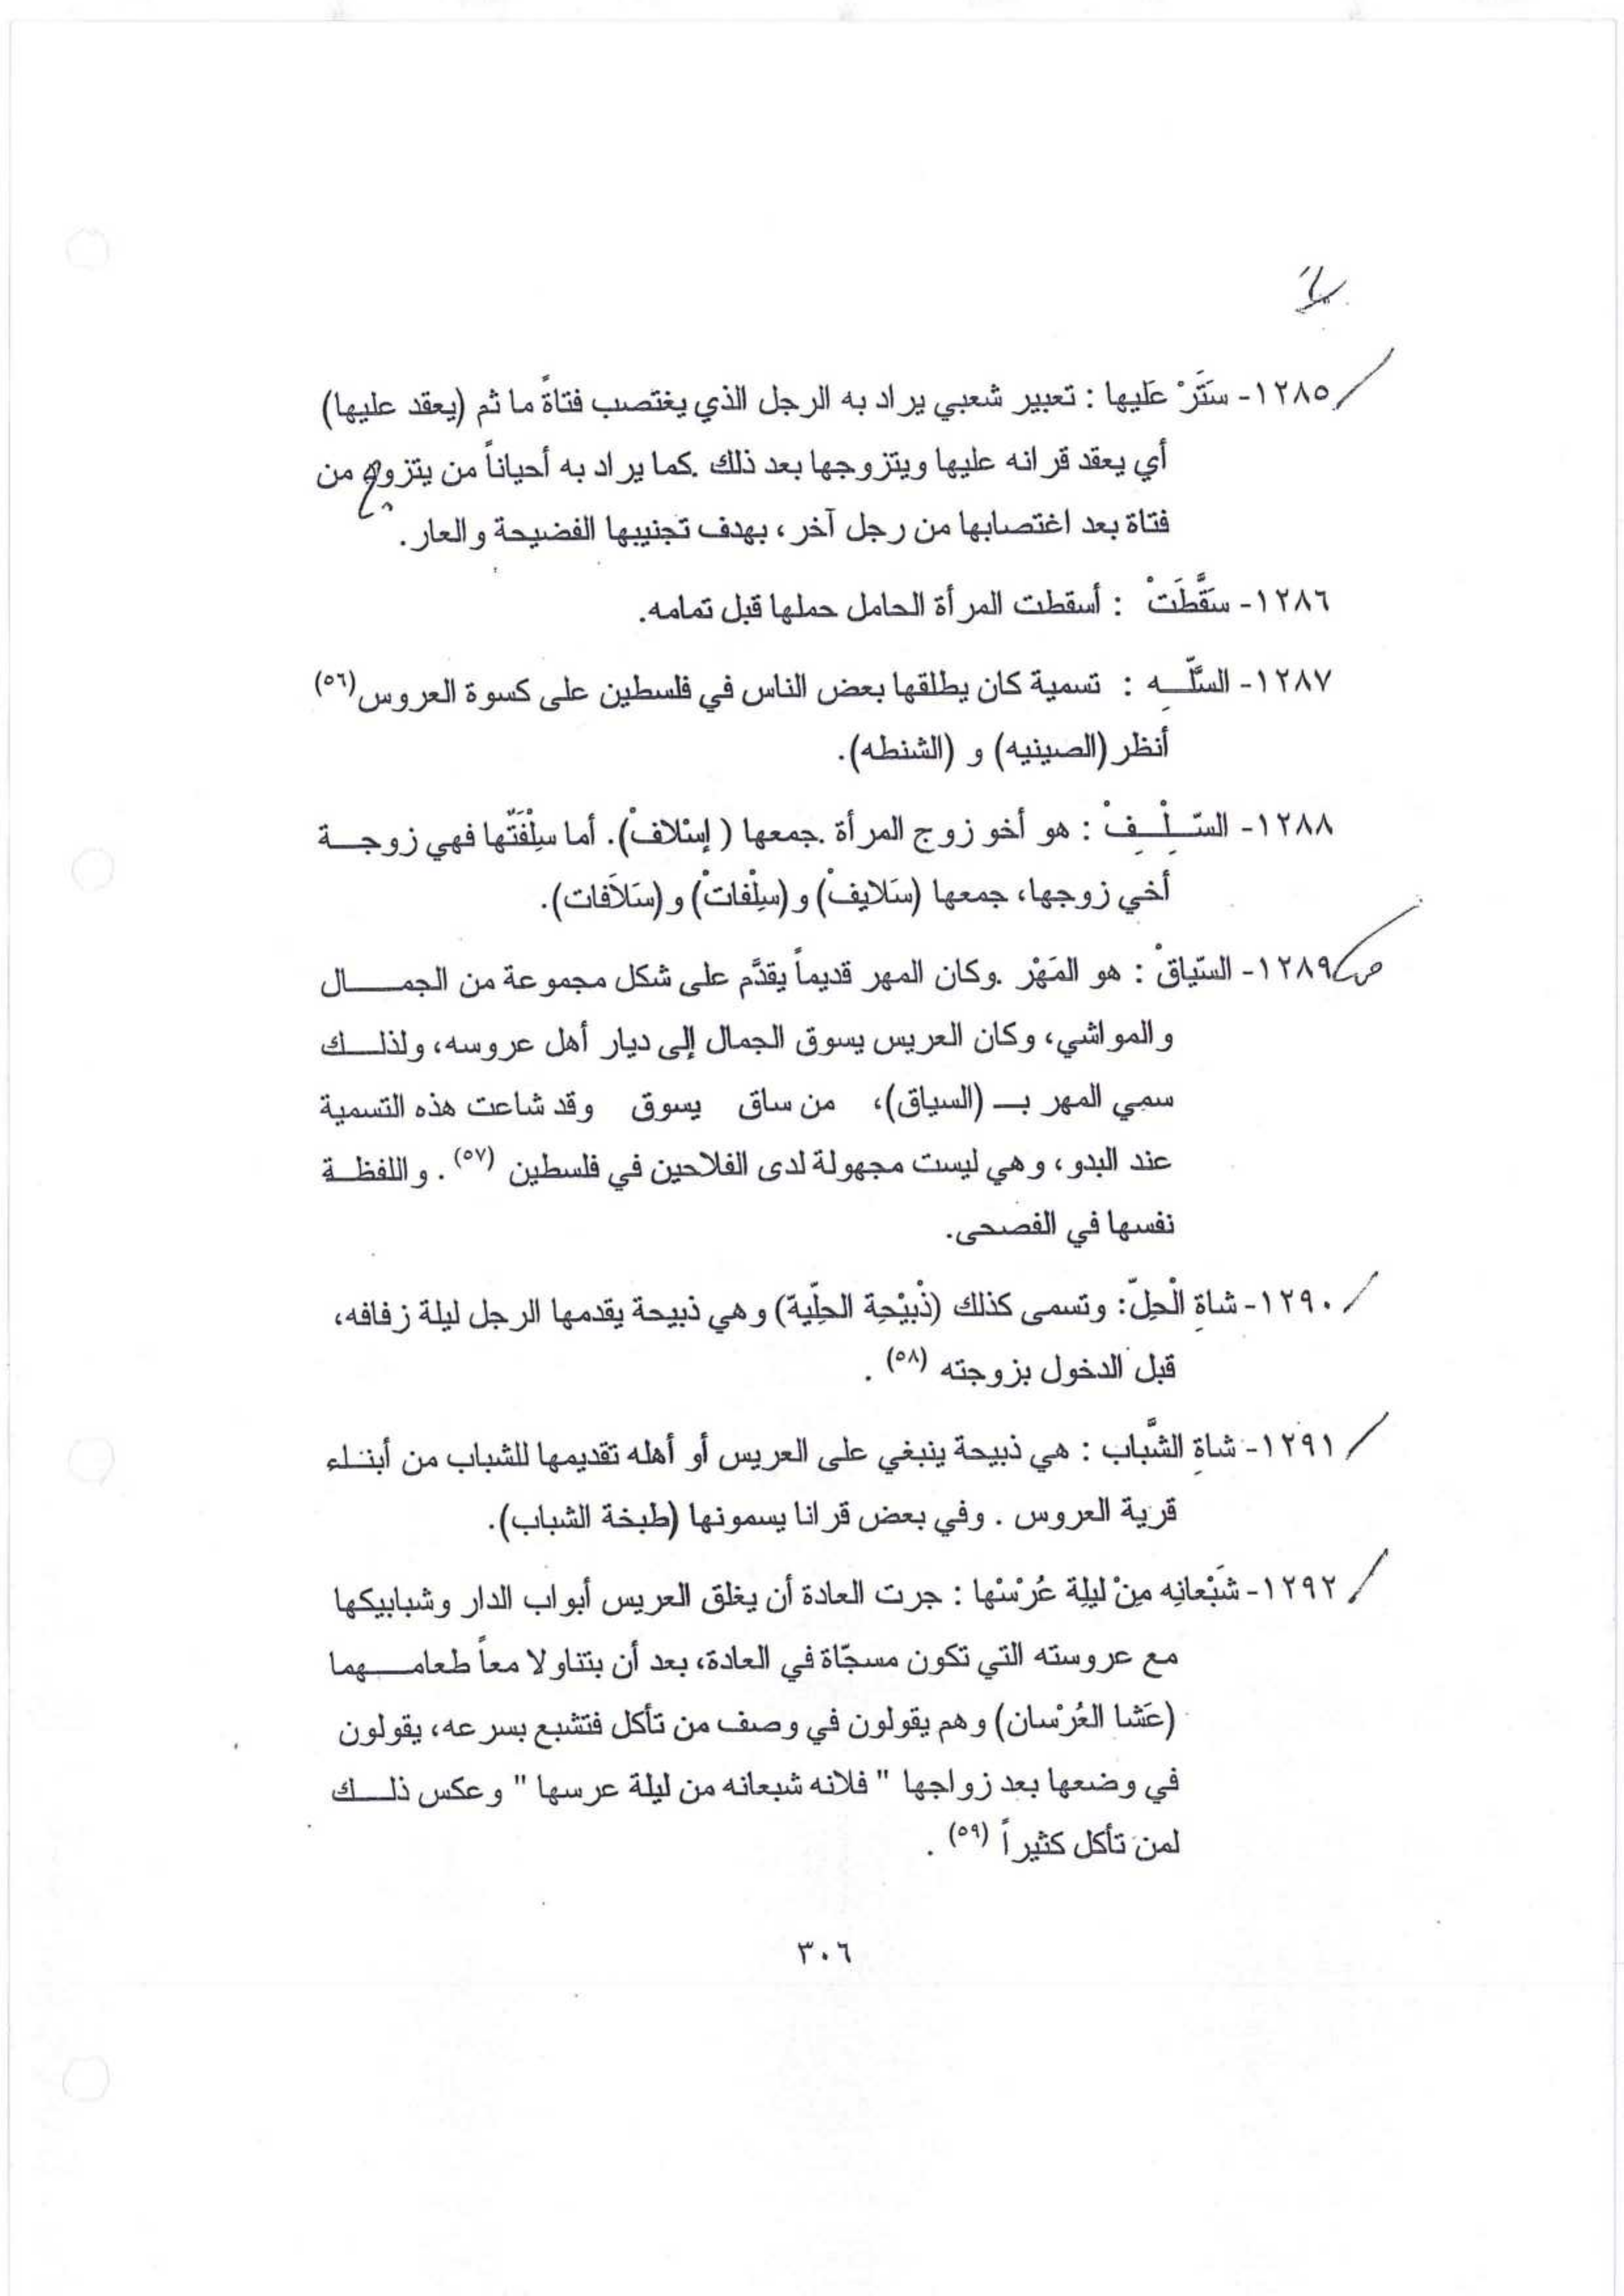 ١٢٨٥- سَتَرْ عَليها : تعبير شعبي يراد به الرجل الذي يغتصب فتاةً ما ثم (يعقد عليها)
أي يعقد قرانه عليها ويتزوجها بعد ذلك .كما يراد به أحياناً من يتزوج من
فتاة بعد اغتصابها من رجل آخر ، بهدف تجنيبها الفضيحة والعار .
١٢٨٦- سَقَّطَتْ : أسقطت المرأة الحامل حملها قبل تمامه.
١٢٨٧- السَّلِّـه : تسمية كان يطلقها بعض الناس في فلسطين على كسوة العروس (٥٦)
أنظر (الصينيه) و (الشنطه).
١٢٨٨- السِّلْـِفْ : هو أخو زوج المرأة .جمعها ( إسْلافْ). أما سِلْفَتْها فهي زوجـة
أخي زوجها، جمعها (سَلايفْ) و (سِلْفاتْ) و (سَلاَفات).
١٢٨٩- السّياقْ : هو المَهْر .وكان المهر قديماً يقدَّم على شكل مجموعة من الجمـال
والمواشي، وكان العريس يسوق الجمال إلى ديار أهل عروسه، ولذلـك
سمي المهر بـ (السياق)، من ساق يسوق وقد شاعت هذه التسمية
عند البدو ، وهي ليست مجهولة لدى الفلاحين في فلسطين (٥٧) . واللفظـة
نفسها في الفصحى.
١٢٩٠- شاةِ الْحِلّ: وتسمى كذلك (ذْبيْحِة الحِلّية) وهي ذبيحة يقدمها الرجل ليلة زفافه،
قبل الدخول بزوجته (٥٨) .
١٢٩١- شاةِ الشَّباب : هي ذبيحة ينبغي على العريس أو أهله تقديمها للشباب من أبنـاء
قرية العروس . وفي بعض قرانا يسمونها (طبخة الشباب).
١٢٩٢- شَبْعانِه مِنْ ليلِة عُرْسْها : جرت العادة أن يغلق العريس أبواب الدار وشبابيكها
مع عروسته التي تكون مسجّاة في العادة، بعد أن يتناولا معاً طعامـهما
(عَشا العُرْسان) وهم يقولون في وصف من تأكل فتشبع بسرعه، يقولون
في وضعها بعد زواجها " فلانه شبعانه من ليلة عرسها " وعكس ذلـك
لمن تأكل كثيراً (٥٩) .
٣٠٦